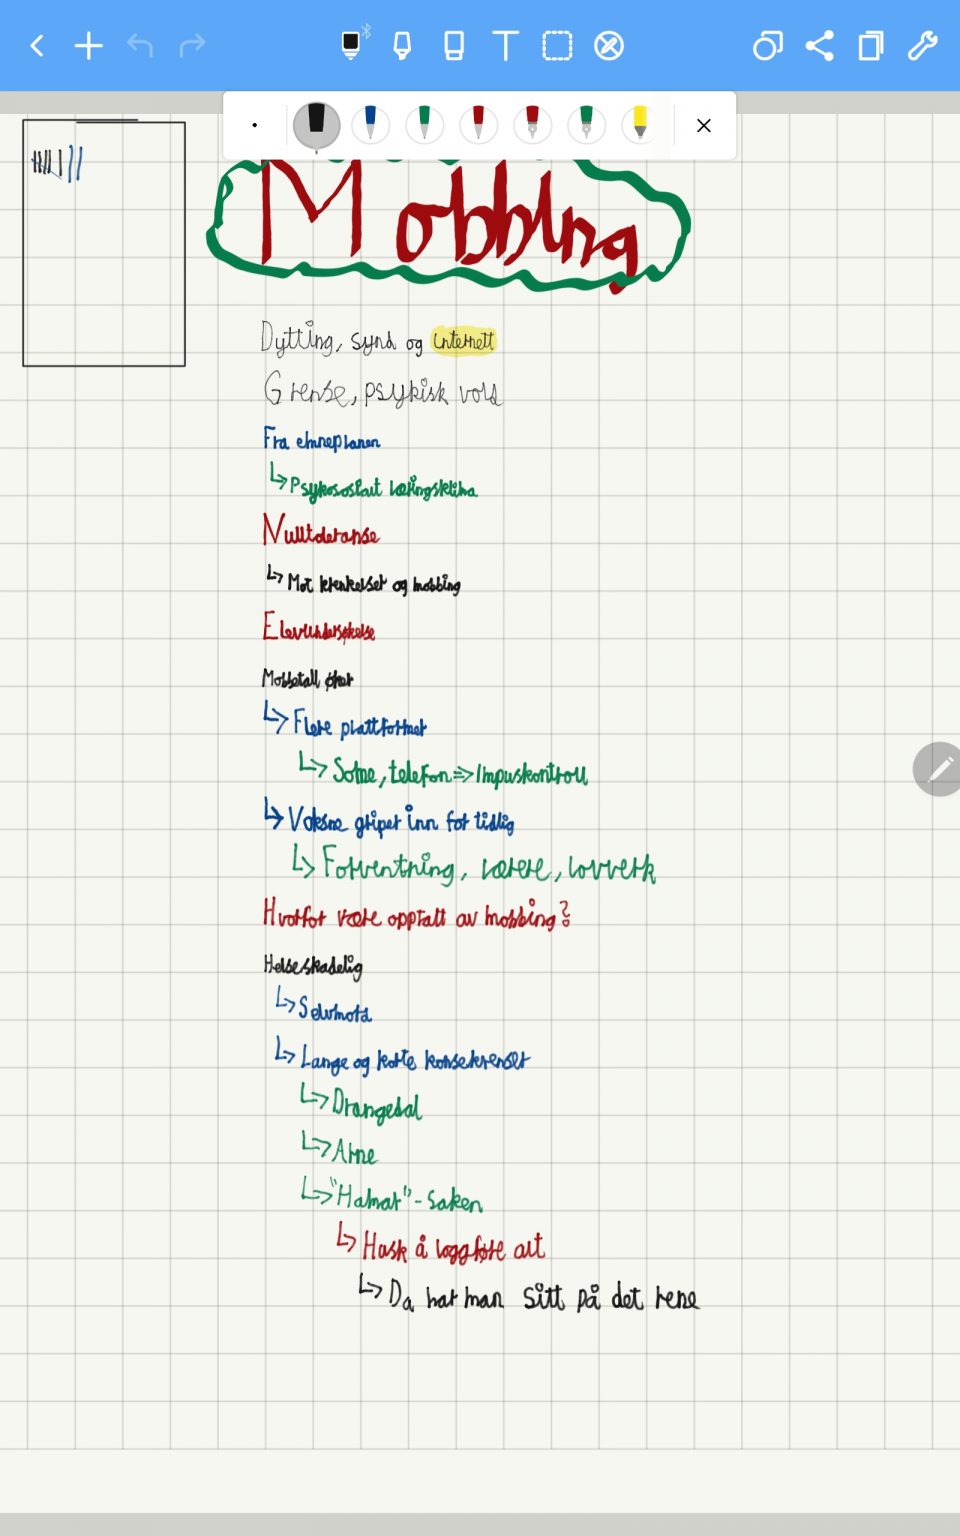 Mobbing
Dytting, synd og internett
Grense, psykisk vold
Fra emneplanen
↳ Psykososialt læringsklima
Nulltoleranse
↳ Mot krenkelser og mobbing
Elevundersøkelse
Mobbetall øker
↳ Flere plattformer
↳ Some, telefon => Impuskontroll
↳ Voksne griper inn for tidlig
↳ Forventning, lærere, lovverk
Hvorfor være opptatt av mobbing?
Helseskadelig
↳ Selvmord
↳ Lange og korte
↳ Drangedal
↳ Arne
↳ "Hamar"-saken
↳ Husk å loggføre alt
↳ Da har man sitt på det rene